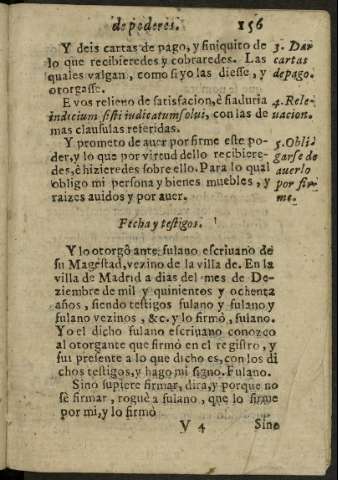 de poderes. 156
Y deis cartas de pago, y finiquito de
lo que recibieredes y cobraredes. Las
quales valgan, como si yo las diesse, y
otorgasse.
3. Dar
cartas
de pago.
E vos relieuo de satisfacion, è fiaduria
indicium sisti iudicatum solui, con las de
mas clausulas referidas.
4. Rele-
uacion.
Y prometo de auer por firme este po-
der, y lo que por virtud dello recibiere-
des, è hizieredes sobre ello. Para lo qual
obligo mi persona y bienes muebles, y
raizes auidos y por auer.
5. Obli-
garse de
auerlo
por fir-
me.
Fecha y testigos.
Y lo otorgô ante fulano escriuano de
su Magestad, vezino de la villa de. En la
villa de Madrid a dias del mes de De-
ziembre de mil y quinientos y ochenta
años, siendo testigos fulano y fulano y
fulano vezinos, &c. y lo firmò, fulano.
Yo el dicho fulano escriuano conozco
al otorgante que firmò en el registro, y
fui presente a lo que dicho es, con los di
chos testigos, y hago mi signo. Fulano.
Sino supiere firmar, dira, y porque no
sè firmar, roguè a fulano, que lo firme
por mi, y lo firmò
V 4 Sino